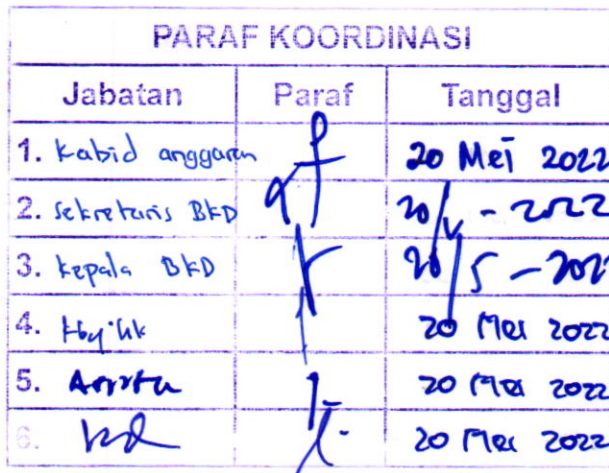 PARAF KOORDINASI
Jabatan Paraf Tanggal
1. Kabid anggaran 20 Mei 2022
2. Sekretaris BKD 20/V - 2022
3. Kepala BKD 20/5 - 202
4. 20 Mei 2022
5. 20 Mei 2022
6. 20 Mei 2022